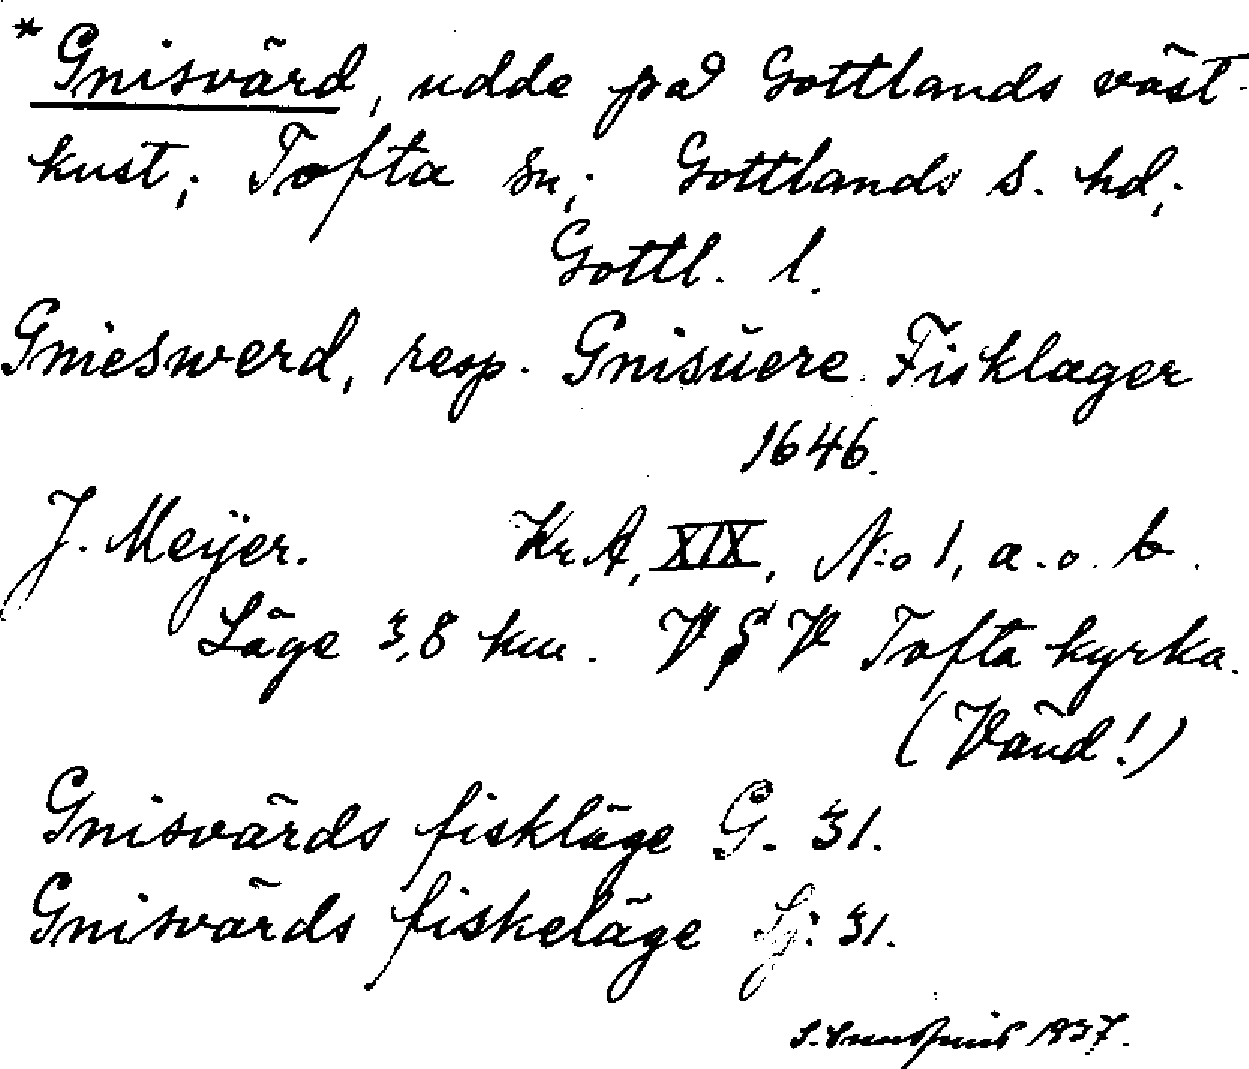 * Gnisvärd, udde på Gottlands väst-
kust; Tofta sn; Gottlands s. hd;
Gottl. l.
Gnieswerd, resp. Gnisŭere Fisklager
1646.
J. Meÿer. Kr A, XIX, N:o 1, a. o. b.
Läge 3,8 km. V §V Tofta kyrka.
(Vänd!)
Gnisvärds fiskläge G. 31.
Gnisvärds fiskeläge Sj: 31.
S. 1937.